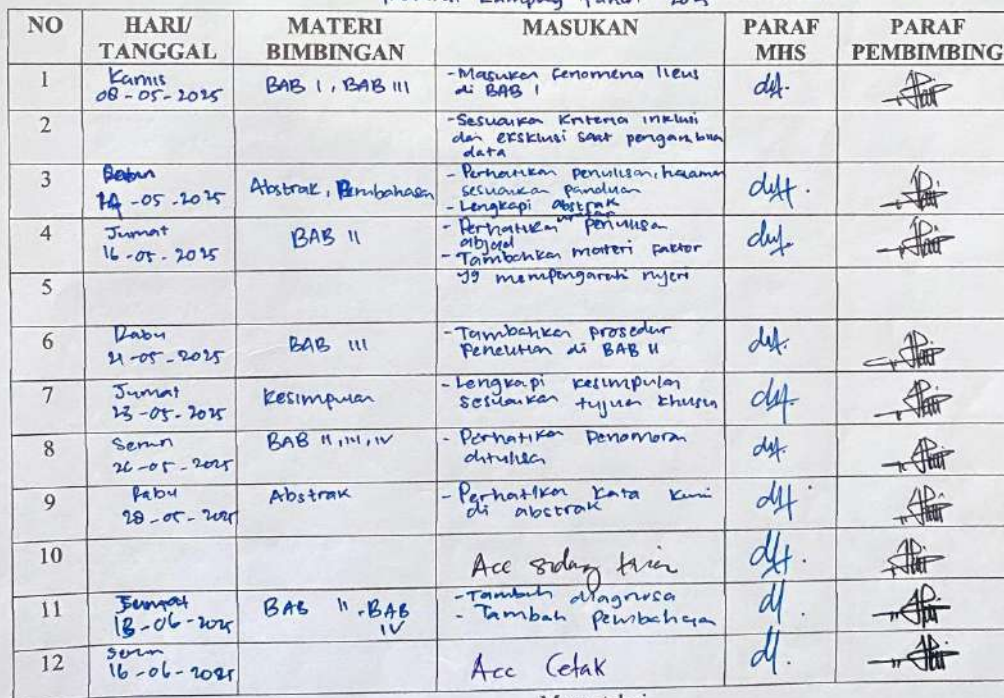 Lampung Tahun 2025
NO HARI/ TANGGAL MATERI BIMBINGAN MASUKAN PARAF MHS PARAF PEMBIMBING
1 Kamis 08-05-2025 BAB I, BAB III - Masukan fenomena Ileus
di BAB I
2 - Sesuaikan Kriteria inklusi
dan eksklusi saat pengambilan
data
3 Rabu 14-05-2025 Abstrak, Pembahasan - Perhatikan penulisan, halaman
sesuaikan panduan
- Lengkapi abstrak
4 Jumat 16-05-2025 BAB II - Perhatikan penulisan
abjad
- Tambahkan materi faktor
5 yg mempengaruhi nyeri
6 Rabu 21-05-2025 BAB III - Tambahkan prosedur
Penelitian di BAB II
7 Jumat 23-05-2025 Kesimpulan - Lengkapi kesimpulan
sesuaikan tujuan khusus
8 Senin 26-05-2025 BAB II, III, IV - Perhatikan Penomoran
ditulisan
9 Rabu 28-05-2025 Abstrak - Perhatikan kata kunci
di abstrak
10 Acc sidang
11 Jumat 13-06-2025 BAB II, BAB IV - Tambah diagnosa
- Tambah Pembahasan
12 Senin 16-06-2025 Acc Cetak